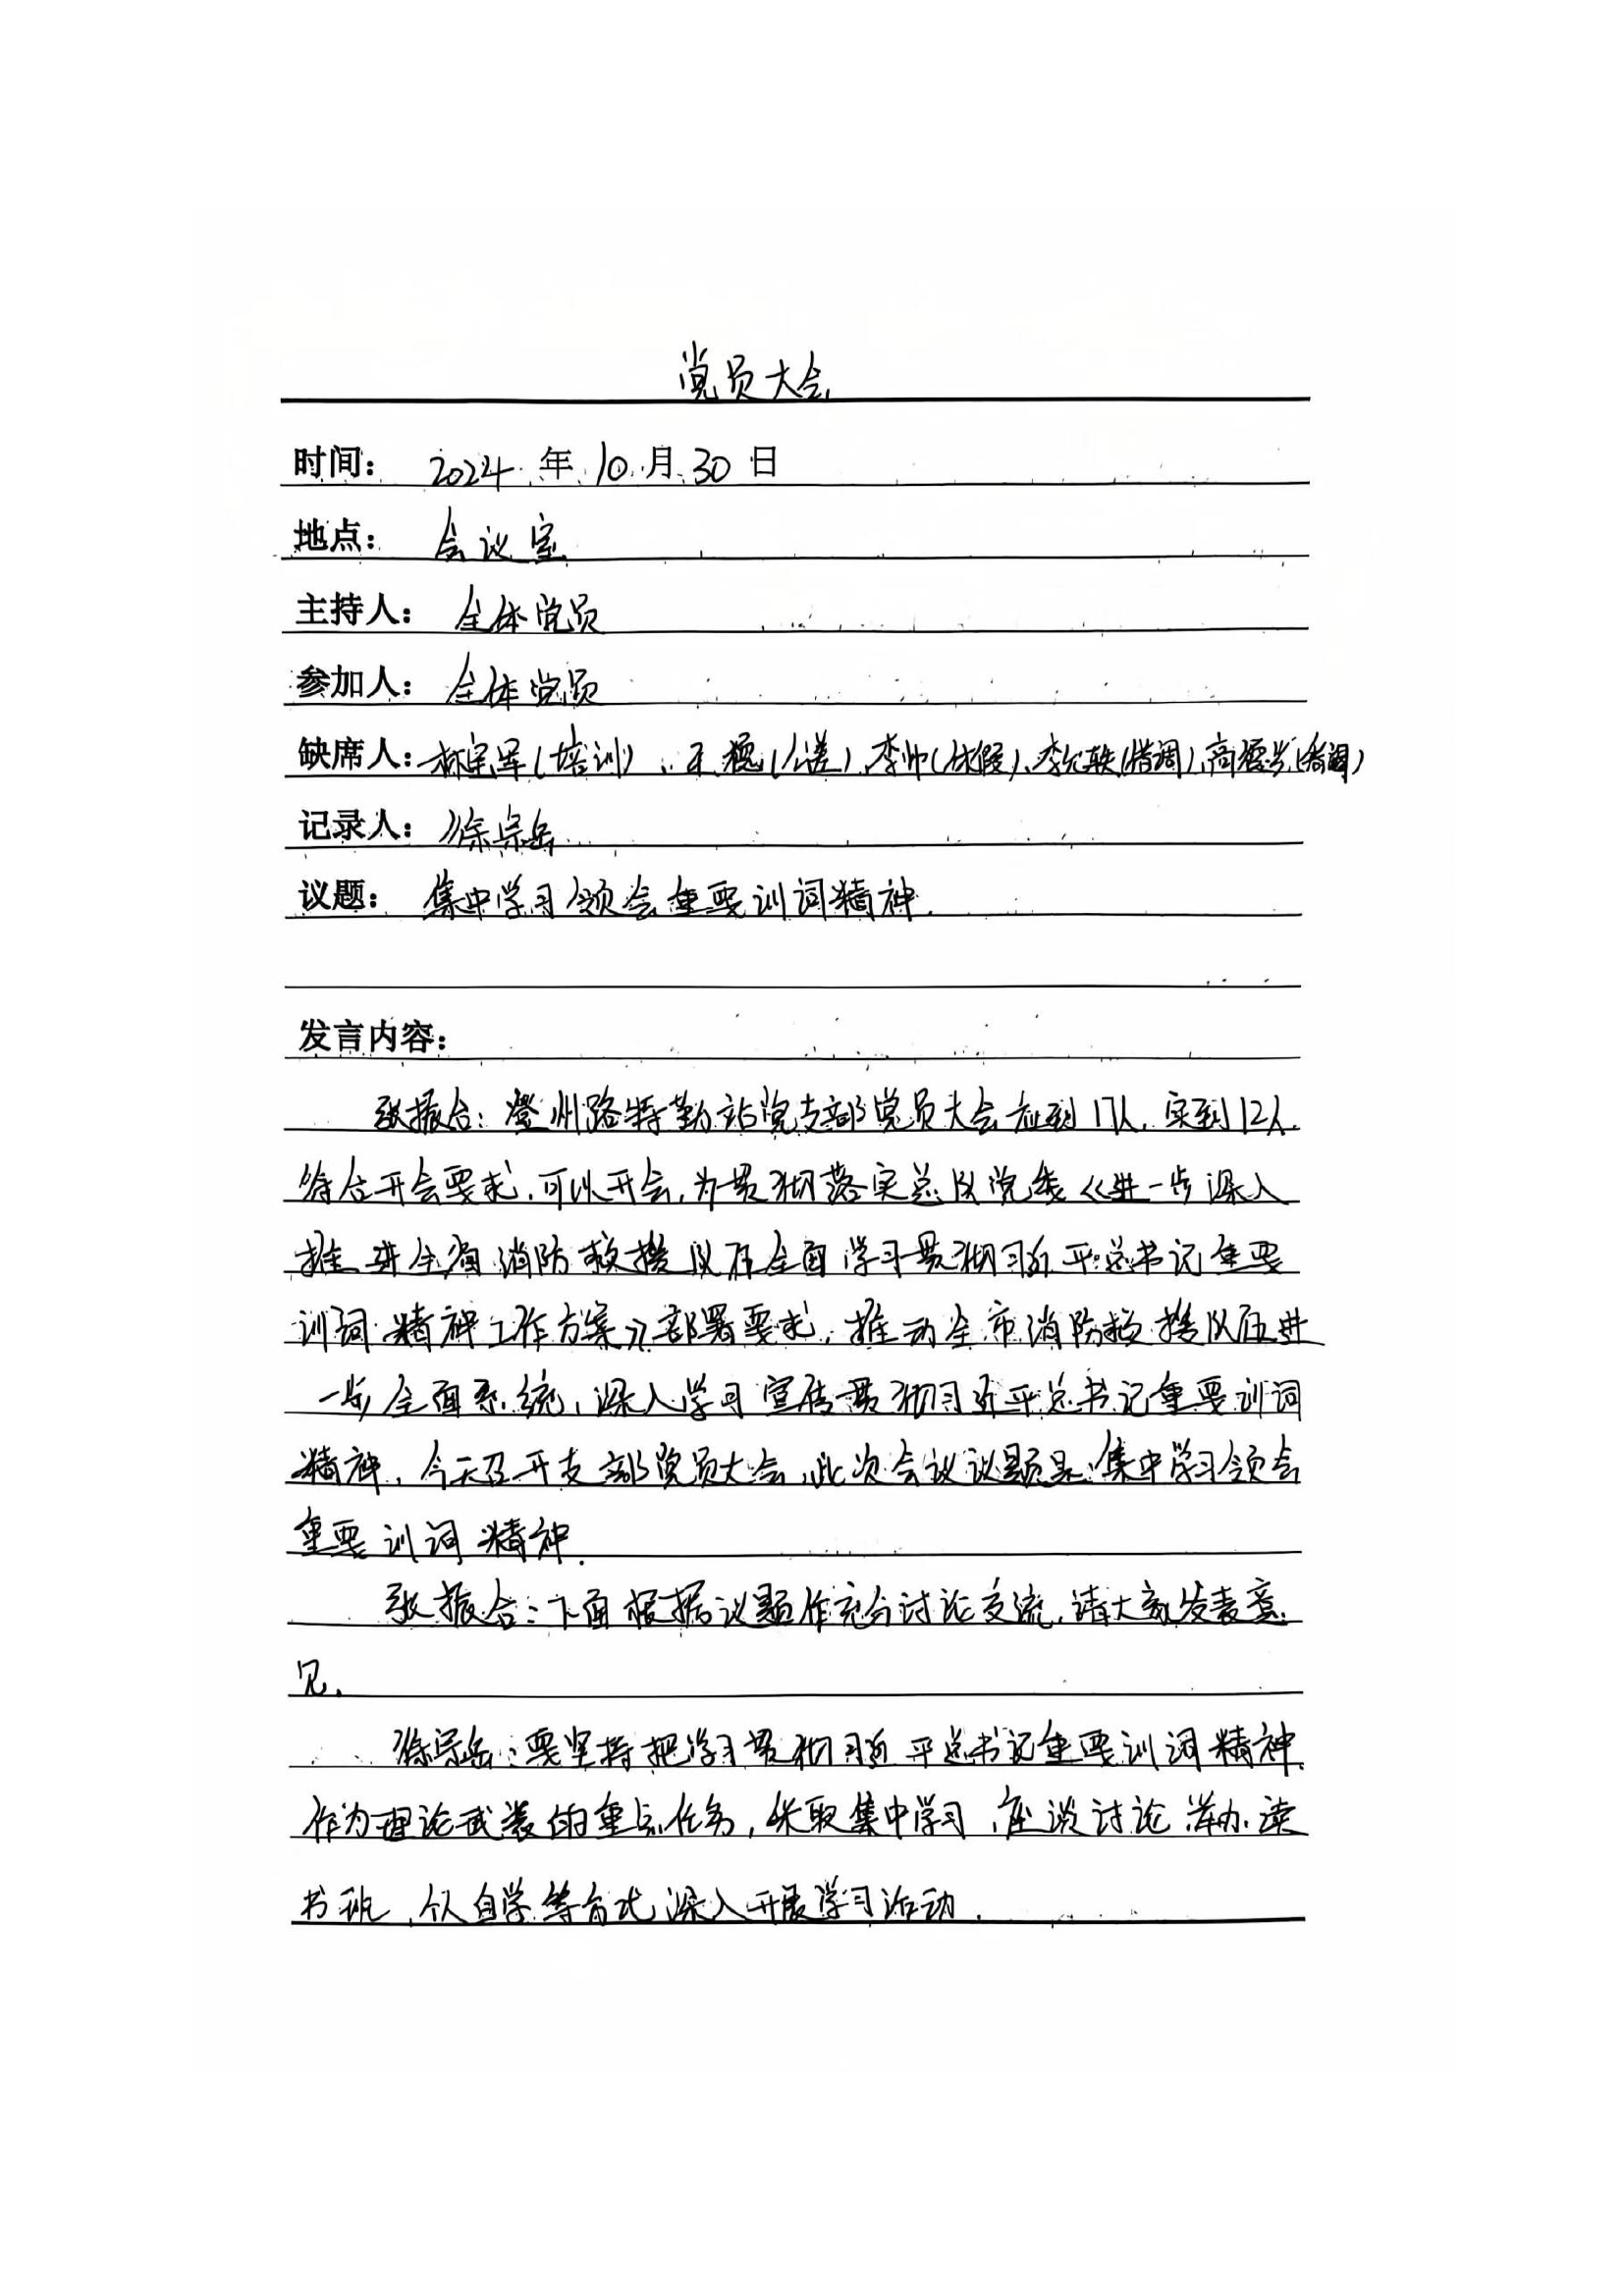 党员大会
时间： 2024 年 10 月 30 日
地点： 会议室
主持人： 全体党员
参加人： 全体党员
缺席人： 林宗军（培训）、王稳（公差）、李帅（休假）、李允轶（借调）、高德光（借调）
记录人： 徐宗岳
议题： 集中学习领会重要训词精神.
发言内容：
张振合：登州路特勤站党支部党员大会应到17人，实到12人，
符合开会要求，可以开会，为贯彻落实总队党委《进一步深入
推进全省消防救援队伍全面学习贯彻习近平总书记重要
训词精神工作方案》部署要求，推动全市消防救援队伍进
一步全面系统、深入学习宣传贯彻习近平总书记重要训词
精神，今天召开支部党员大会，此次会议议题是：集中学习领会
重要训词精神.
张振合：下面根据议题作充分讨论交流，请大家发表意
见.
徐宗岳：要坚持把学习贯彻习近平总书记重要训词精神
作为理论武装的重点任务，采取集中学习、座谈讨论、举办读
书班、个人自学等方式深入开展学习活动.